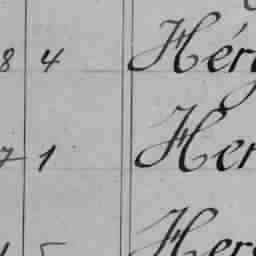 8 4 Hér
7 1 Her
5 Her